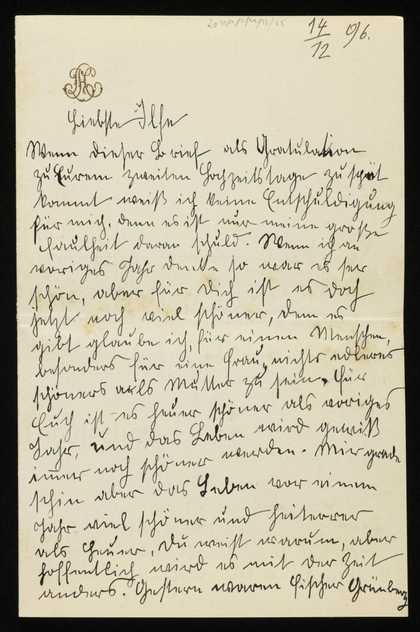 14/12 96.
Liebste Ilse
Wenn dieser Brief als Gratulation
zu Eurem zweiten Hochzeitstage zu spät
kommt weiß ich keine Entschuldigung
für mich, denn es ist nur meine große
Faulheit daran schuld. Wenn ich an
voriges Jahr denke so war es ser
schön, aber für Dich ist es doch
jetzt noch viel schöner, denn es
gibt glaube ich, für einen Menschen,
besonders für eine Frau, nichts edleres
schöneres als Mutter zu sein. Für
Euch ist es heuer schöner als voriges
Jahr, und das Leben wird gewiß
immer noch schöner werden. Mir grade
schin aber das Leben vor einem
Jahr viel schöner und heiterer
als heuer, Du weist warum, aber
hoffentlich wird es mit der Zeit
anders. Gestern waren Fischer Grünberg